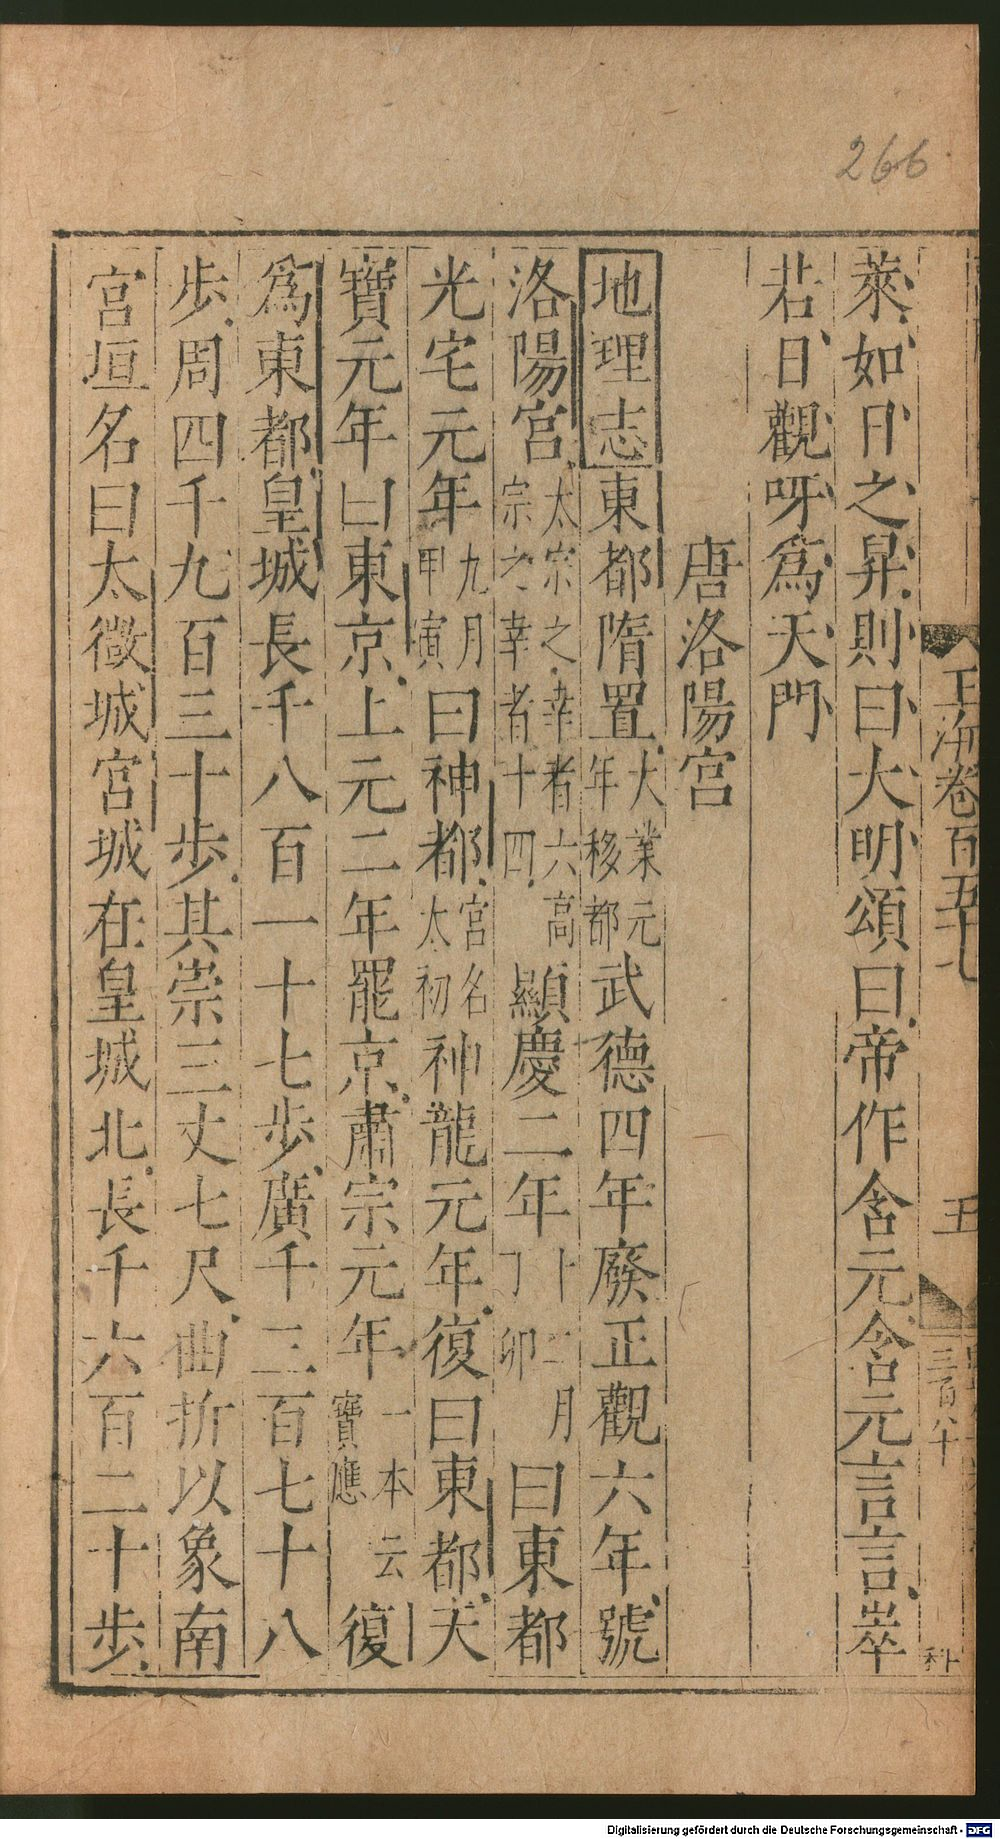 266
玉海卷百五十七
五
三百八十
萊如日之昇則曰大明頌曰帝作含元含元言言崒
若日觀呀為天門
唐洛陽宮
地理志東都隋置大業元年移都武德四年廢正觀六年號
洛陽宮太宗之幸者六高宗之幸者十四顯慶二年十二月丁卯曰東都
光宅元年九月甲寅曰神都宮名太初神龍元年復曰東都天
寶元年曰東京上元二年罷京肅宗元年一本云寶應復
爲東都皇城長千八百一十七步廣千三百七十八
步周四千九百三十步其崇三丈七尺曲折以象南
宮垣名曰太微城宮城在皇城北長千六百二十步
Digitalisierung gefördert durch die Deutsche Forschungsgemeinschaft - DFG